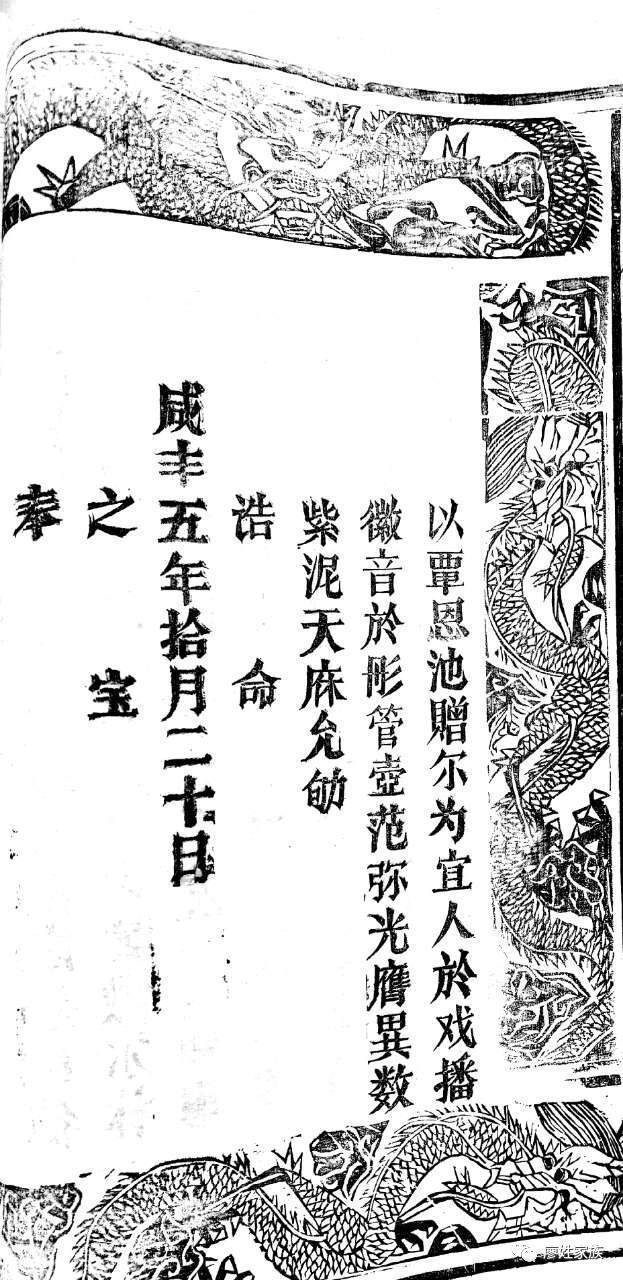 以覃恩池贈尔为宜人於戏播
徽音於彤管壺范弥光膺異数
紫泥天庥允劭
诰命
咸丰五年拾月二十日
之宝
奉
廖姓家族